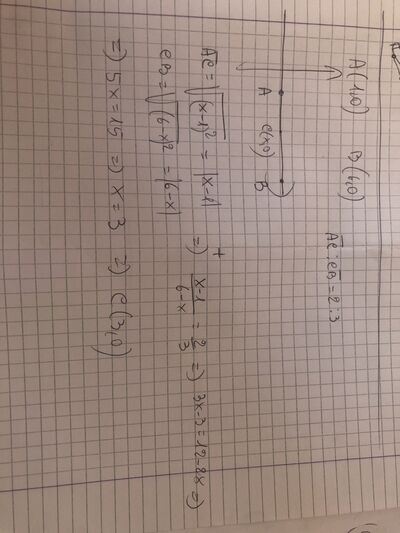 A(1,0) B(6,0) AC:CB = 2:3
A C(x,0) B
AC = √(x-1)² = |x-1|
CB = √(6-x)² = |6-x|
=> x-1/6-x = 2/3 => 3x-3=12-2x =>
=> 5x=15 => x=3 => C(3,0)